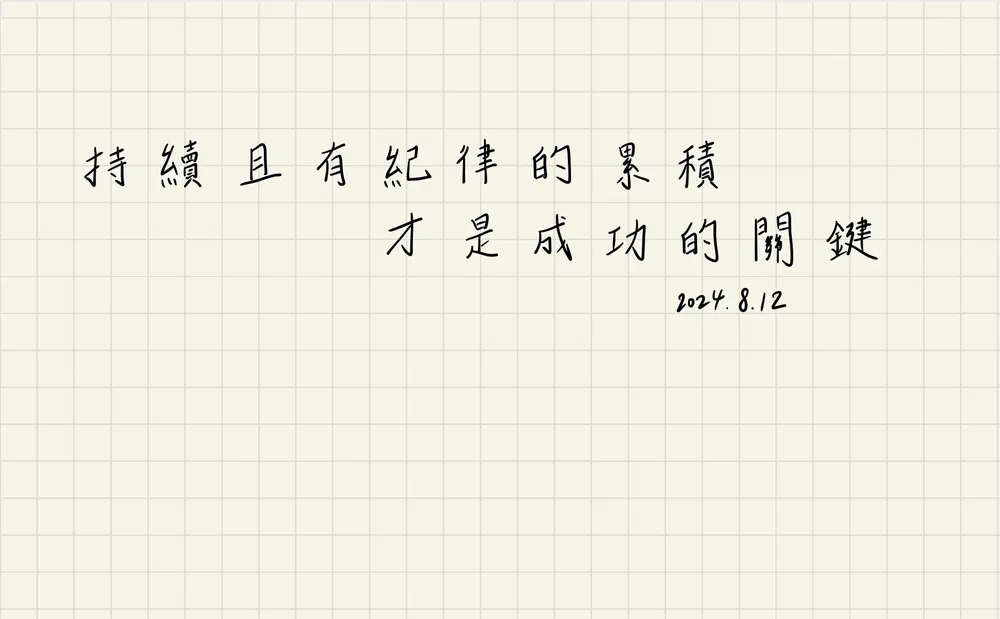 持續且有紀律的累積
才是成功的關鍵
2024.8.12